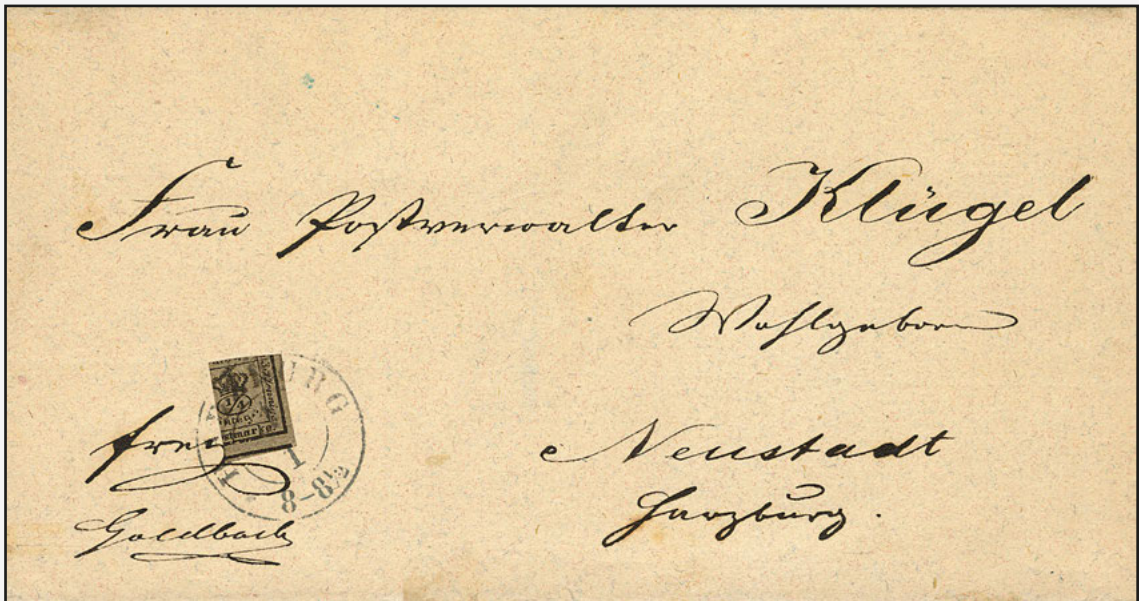 Frau Postverwalter Klügel
Wohlgeboren
Neustadt
Harzburg.
frei
Goldbach
URG
1/4
tmarke.
1
8-8½